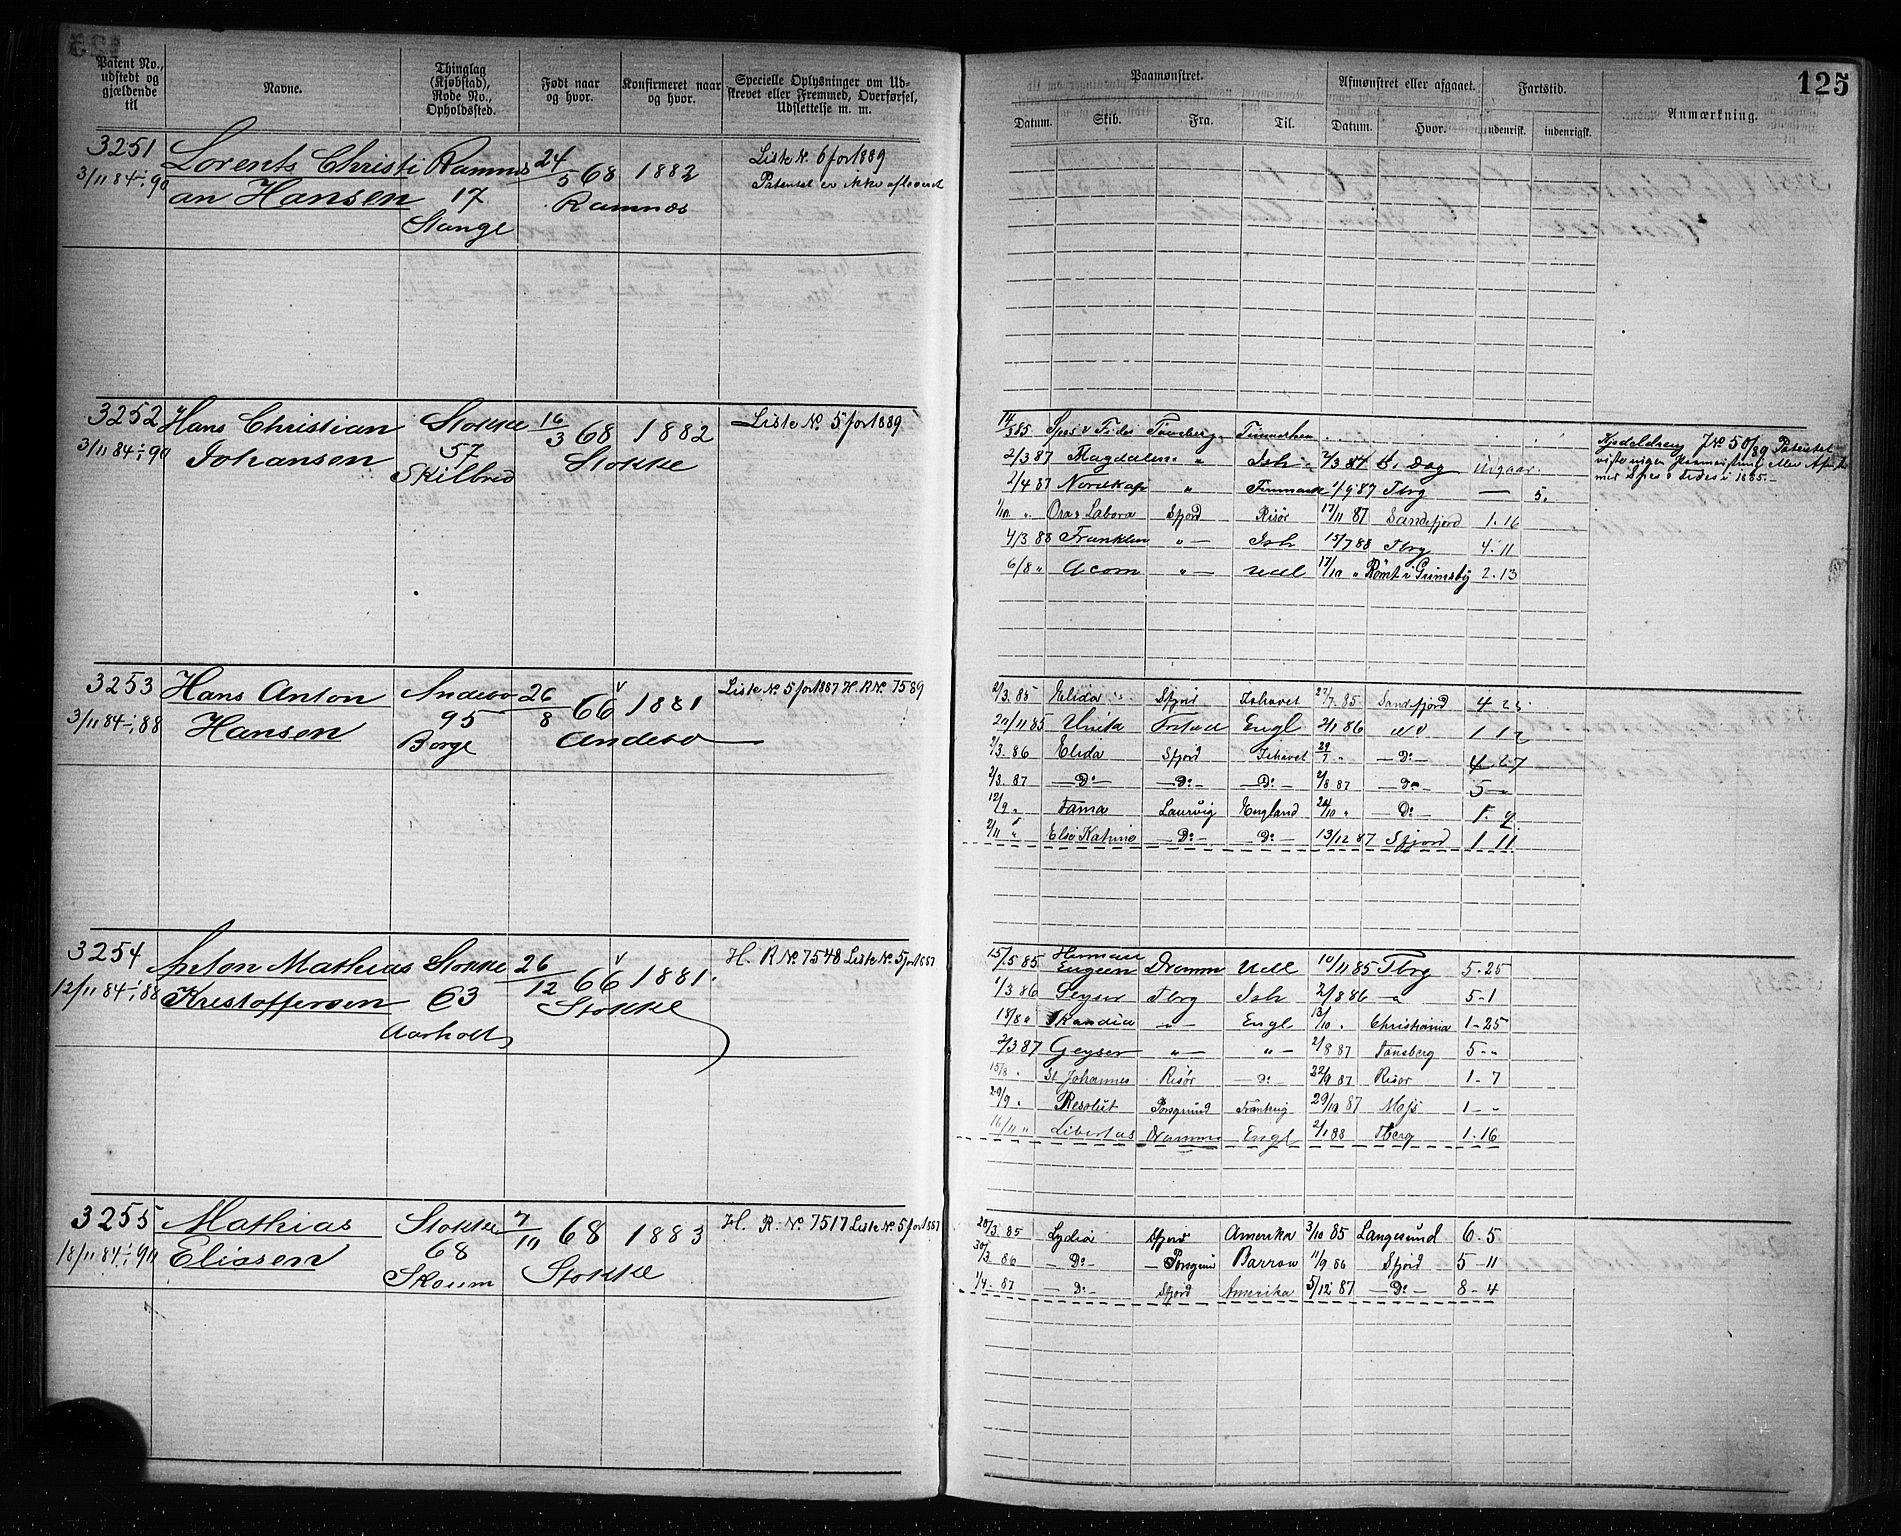 125
Patent No., udstedt og gjældende til
Navne.
Thinglag (Kjøbstad), Rode No., Opholdssted.
Født naar og hvor.
Konfirmeret naar og hvor.
Specielle Oplysninger om Udskrevet eller Fremmed, Overførsel, Udslettelse m. m.
Paamønstret.
Afmønstret eller afgaaet.
Fartstid.
Anmærkning.
Datum. Skib. Fra. Til. Datum. Hvor. udenrigsk. indenrigsk.
3251 Lorents Christi Ramnes 24/5 68 1882 Liste N. 6 for 1889
3/11 84-:-90 an Hansen 17 Ramnæs Patentet er ikke afleveret
Stange
3252 Hans Christian Stokke 16/3 68 1882 Liste N. 5 for 1889
3/11 84-:-90 Johansen 57 Stokke
Skilbred
14/3 85 Spes & Fides Tønsberg
2/3 87 Magdalena " Ish B. Dag
2/4 87 Nordkap " Finmark 1/9 87 Tbrg — 5.
1/10 " Ora & Labora Sfjord Risør 17/11 87 Sandefjord 1. 16
4/3 88 Franklin " — Ish 15/7 88 Tbrg 4. 11
6/8 " Acorn " — Udl 17/10 " Rømt i Grimsby 2. 13
3253 Hans Anton Andebo 26/8 66 1881 Liste N. 5 for 1887 H. R N. 7589
3/11 84-:-88 Hansen 95 Andebo
Borge
2/3. 85 Elida Sfjord Ishavet 27/7. 85 Sandefjord 4 25
20/11 85 Unita Engl 2/1 86 1 12
2/3. 86 Elida Sfjord Ishavet 29/7 " — Do — 4 - 27
2/3. 87 — Do — — Do — — Do — 2/8 87 — Do — 5 -
12/9 " Fama Laurvig England 20/10 " — Do — 1. 9
2/11 " Elise Katrine — Do — — Do — 13/12 87 Sfjord 1 11
3254 Anton Mathias Stokke 26/12 66 1881. H. R N. 7548 Liste N. 5 for 1887
12/11 84-:-88 Kristoffersen 63 Stokke
Aarholt
15/5 85 Herman
Eugeen Dramm Udl 10/11 85 Tbrg 5-25
1/3 86 Geyser Tbrg Ish 2/8 86 " 5-1
18/8 " Skandia " — Engl 13/10 " Christiania 1-25
2/3 87 Geyser " — " — 2/8 87 Tønsberg 5- "
15/8 " St Johannes Risør — Do — 22/9 87 Risør 1-7
29/9 " Resolut Porsgrund Frankrig 29/10 87 Moss 1 - -
16/11 " Libertas Dramm Engl 2/1 88 Tberg 1. 16
3255 Mathias Stokke 7/10 68 1883 H. R. N. 7517 Liste N. 5 for 1887
18/11 84-:-90 Eliasen 68 Stokke
Skoum
28/3. 85 Lydia Sfjord Amerika 3/10 85 Langesund 6. 5
30/3. 86 — Do — Porsgrund Barrow 11/9 86 Sfjord 5 - 11
1/4. 87 — Do — Sfjord Amerika 5/12 87 — Do — 8 - 4